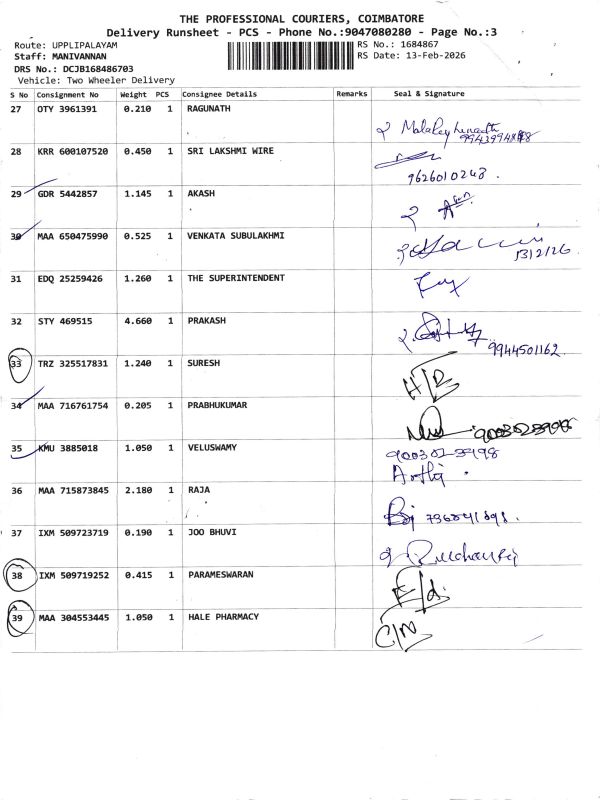 THE PROFESSIONAL COURIERS, COIMBATORE
Delivery Runsheet - PCS - Phone No.:9047080280 - Page No.:3
Route: UPPLIPALAYAM RS No.: 1684867
Staff: MANIVANNAN RS Date: 13-Feb-2026
DRS No.: DCJB168486703
Vehicle: Two Wheeler Delivery
S No Consignment No Weight PCS Consignee Details Remarks Seal & Signature
27 OTY 3961391 0.210 1 RAGUNATH
28 KRR 600107520 0.450 1 SRI LAKSHMI WIRE
9626010248.
29 GDR 5442857 1.145 1 AKASH
30 MAA 650475990 0.525 1 VENKATA SUBULAKHMI
13/2/26
31 EDQ 25259426 1.260 1 THE SUPERINTENDENT
32 STY 469515 4.660 1 PRAKASH
9944501162.
33 TRZ 325517831 1.240 1 SURESH
H/D
34 MAA 716761754 0.205 1 PRABHUKUMAR
35 KMU 3885018 1.050 1 VELUSWAMY
Arthj
36 MAA 715873845 2.180 1 RAJA
37 IXM 509723719 0.190 1 JOO BHUVI
38 IXM 509719252 0.415 1 PARAMESWARAN
F/d.
39 MAA 304553445 1.050 1 HALE PHARMACY
C/N